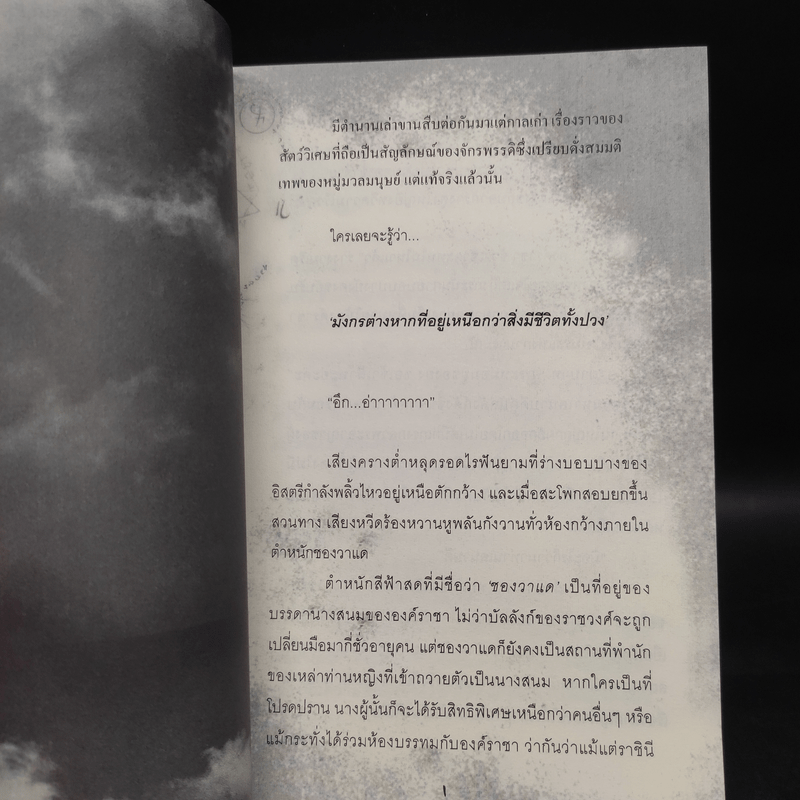 มีตำนานเล่าขานสืบต่อกันมาแต่กาลเก่า เรื่องราวของ
สัตว์วิเศษที่ถือเป็นสัญลักษณ์ของจักรพรรดิซึ่งเปรียบดั่งสมมติ
เทพของหมู่มวลมนุษย์ แต่แท้จริงแล้วนั้น
ใครเลยจะรู้ว่า...
‘มังกรต่างหากที่อยู่เหนือกว่าสิ่งมีชีวิตทั้งปวง’
“อึก...อ่าาาาาาาา”
เสียงครางต่ำหลุดรอดไรฟันยามที่ร่างบอบบางของ
อิสตรีกำลังพลิ้วไหวอยู่เหนือตักกว้าง และเมื่อสะโพกสอบยกขึ้น
สวนทาง เสียงหวีดร้องหวานหูพลันกังวานทั่วห้องกว้างภายใน
ตำหนักชองวาแด
ตำหนักสีฟ้าสดที่มีชื่อว่า ‘ชองวาแด’ เป็นที่อยู่ของ
บรรดานางสนมขององค์ราชา ไม่ว่าบัลลังก์ของราชวงศ์จะถูก
เปลี่ยนมือมากี่ชั่วอายุคน แต่ชองวาแดก็ยังคงเป็นสถานที่พำนัก
ของเหล่าท่านหญิงที่เข้าถวายตัวเป็นนางสนม หากใครเป็นที่
โปรดปราน นางผู้นั้นก็จะได้รับสิทธิพิเศษเหนือกว่าคนอื่นๆ หรือ
แม้กระทั่งได้ร่วมห้องบรรทมกับองค์ราชา ว่ากันว่าแม้แต่ราชินี
1